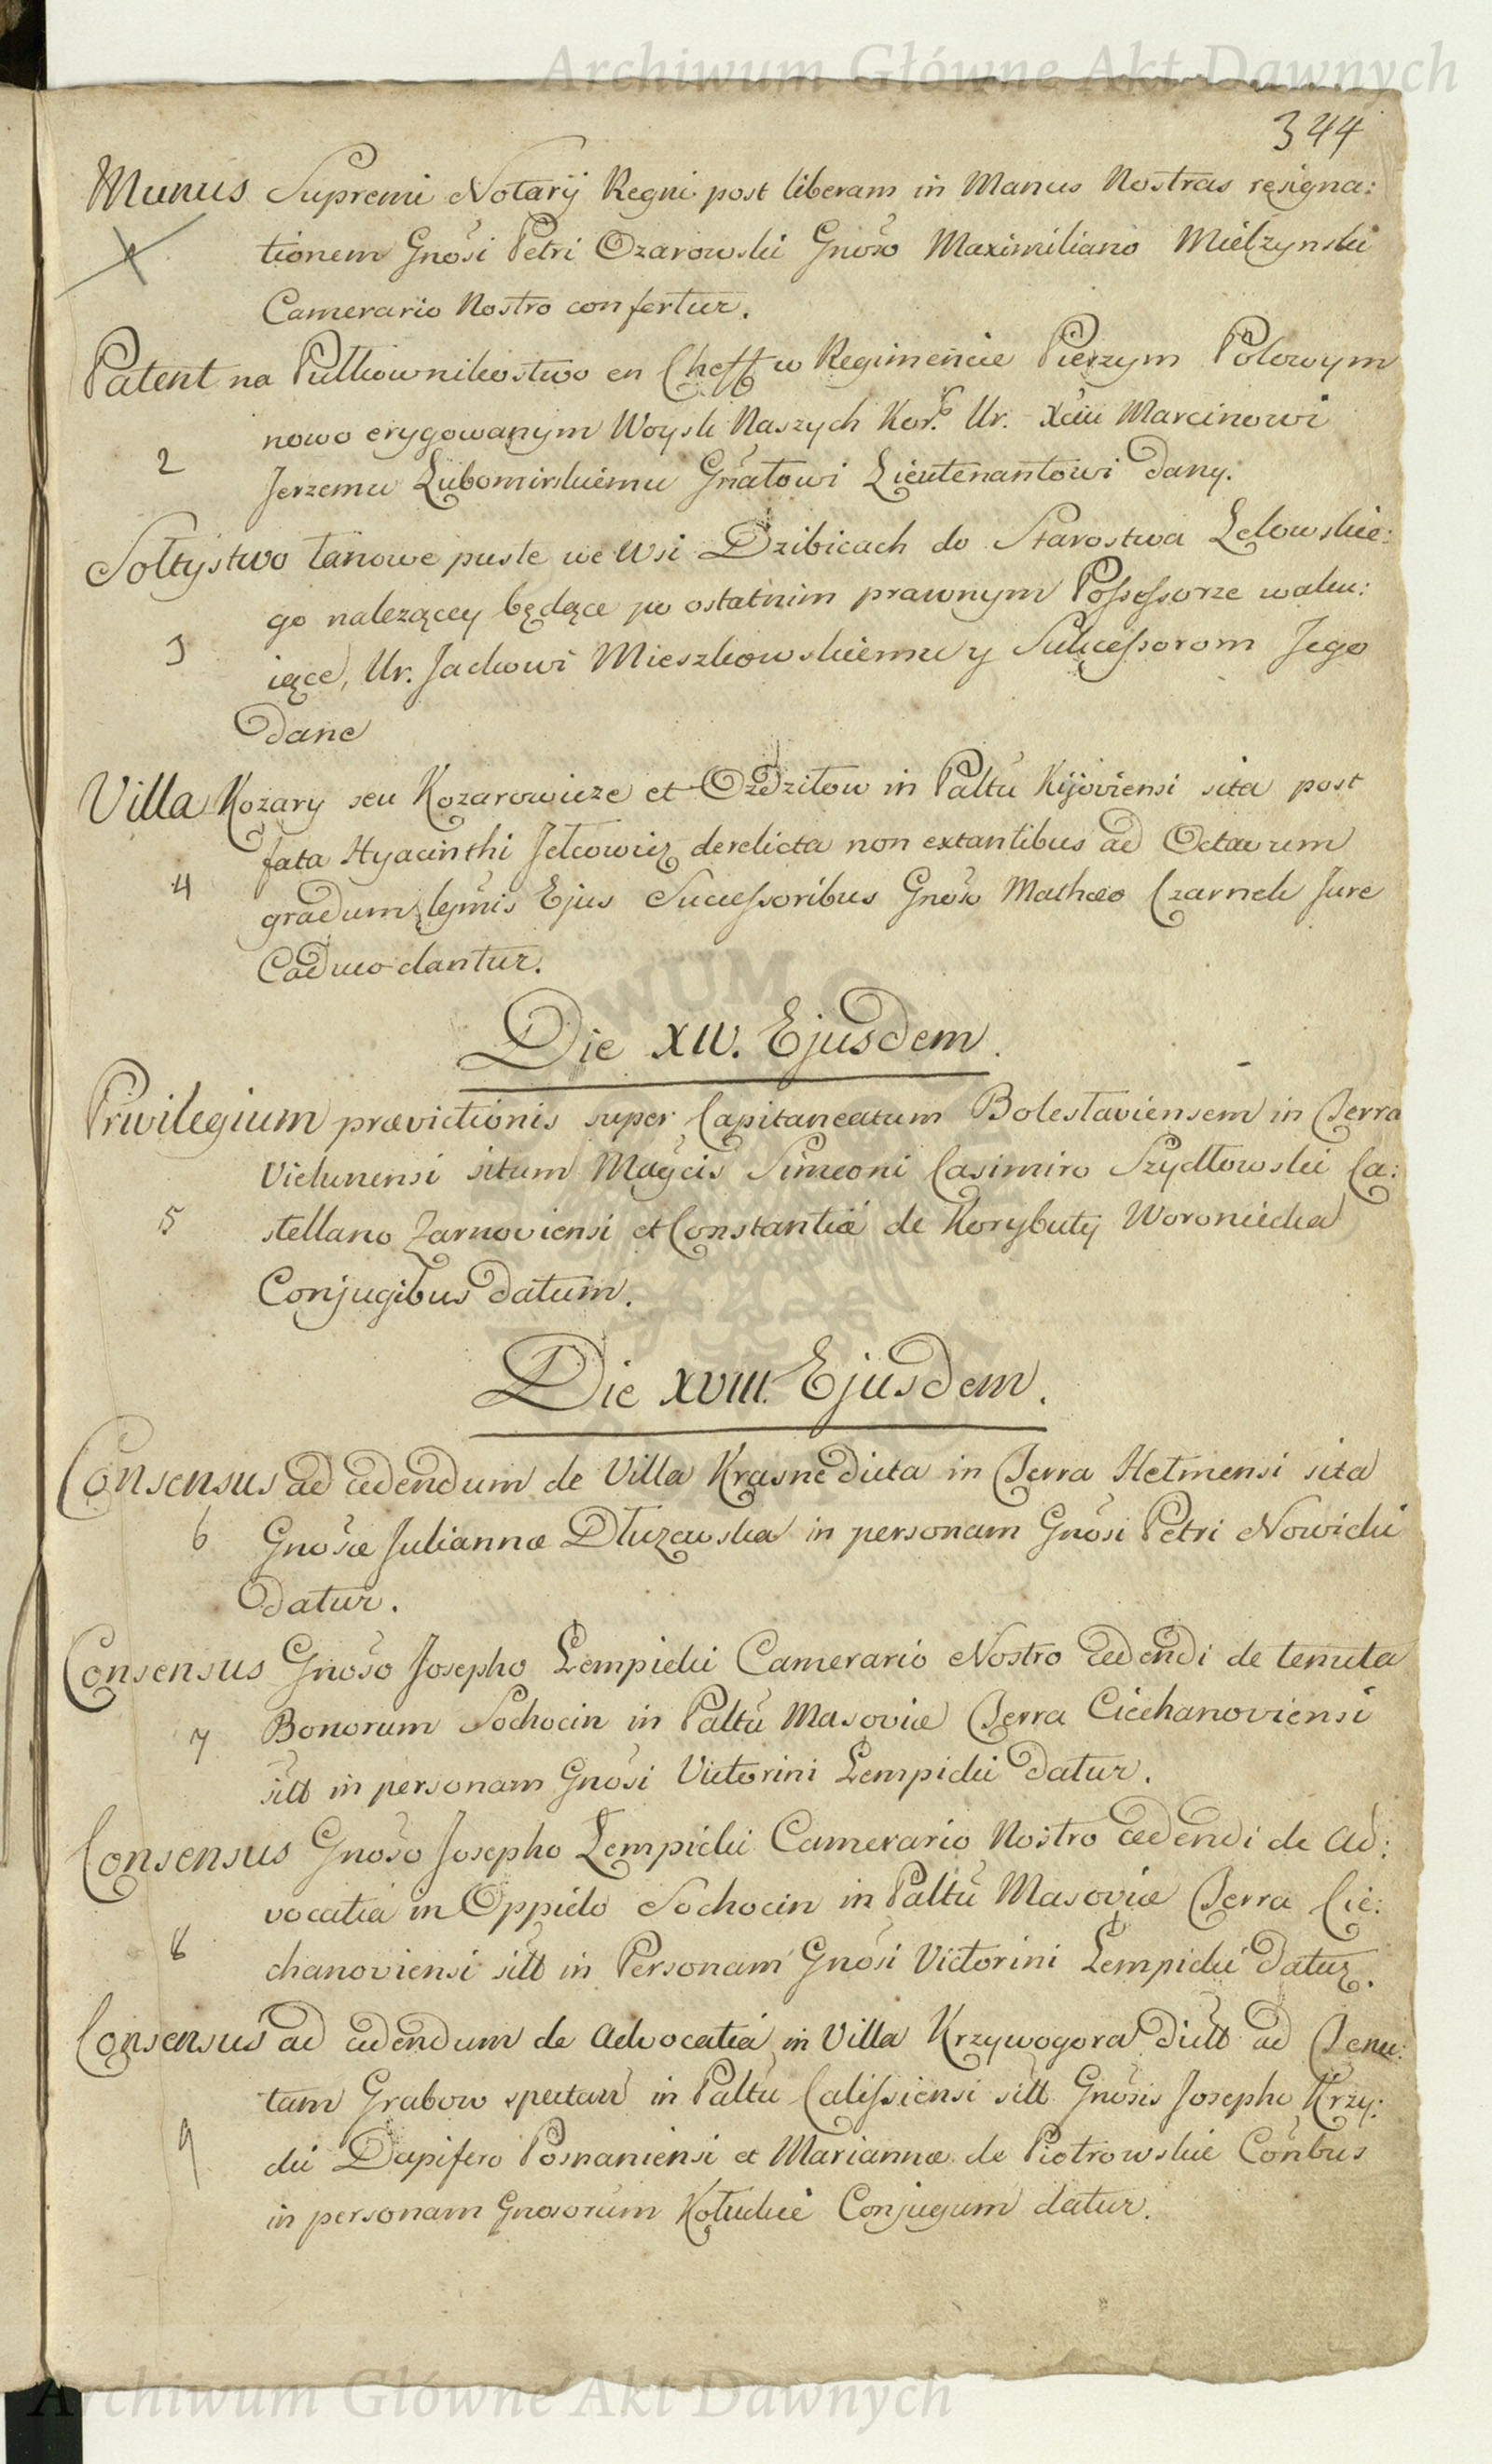 Archiwum Główne Akt Dawnych
344
Munus Supremi Notarij Regni post liberam in Manus Nostras resigna:
tionem Gnosi Petri Ozarowski Gnoso Maximiliano Mielzynski
Camerario Nostro confertur.
Patent na Pułkownikostwo en Cheff w Regimencie Pieszym Polowym
nowo erygowanym Woysk Naszych Kor. Ur. Xciu Marcinowi
2
Jerzemu Lubomirskiemu Gnałowi Lieutenantowi dany.
Sołtystwo łanowe puste we wsi Dzibicach do Starostwa Lelowskie:
go nalezącey będące po ostatnim prawnym Possessorze waku:
3
iące, Ur. Jackowi Mieszkowskiemu y Sukcessorom Jego
dane
Villa Kozary seu Kozarowicze et Ozdzitow in Paltu Kijoviensi sita post
fata Hyacinthi Jelcowicz derelicta non extantibus ad Octavum
4
gradum legmis Ejus Successoribus Gnoso Mathæo Czarnek Jure
Caduco dantur.
Die XIV. Ejusdem.
Privilegium prævictionis super Capitaneatum Bolestaviensem in Terra
Vielunensi situm Magcis Simeoni Casimiro Szydłowski Ca:
5
stellano Zarnoviensi et Constantiæ de Korybuty Woroniecka
Conjugibus datum.
Die XVIII. Ejusdem.
Consensus ad cedendum de Villa Krasne dicta in Terra Helmensi sita
6
Gnosæ Juliannæ Dłuzewska in personam Gnosi Petri Nowicki
datur.
Consensus Gnoso Josepho Lempicki Camerario Nostro cedendi de tenuta
Bonorum Sochocin in Paltu Masoviæ Terra Ciechanoviensi
7
sitt in personam Gnosi Victorini Lempicki datur.
Consensus Gnoso Josepho Lempicki Camerario Nostro cedendi de Ad:
vocatia in Oppido Sochocin in Paltu Masoviæ Terra Cie:
8
chanoviensi sitt in Personam Gnosi Victorini Lempicki datur.
Consensus ad cedendum de Advocatia in Villa Krzywogora dictt ad Tenu:
tam Grabow spectan in Paltu Calissiensi sitt Gnosis Josepho Krzy:
9
cki Dapifero Posnaniensi et Mariannæ de Piotrowskie Conbus
in personam Gnosorum Kołuckie Conjugum datur.
Archiwum Główne Akt Dawnych